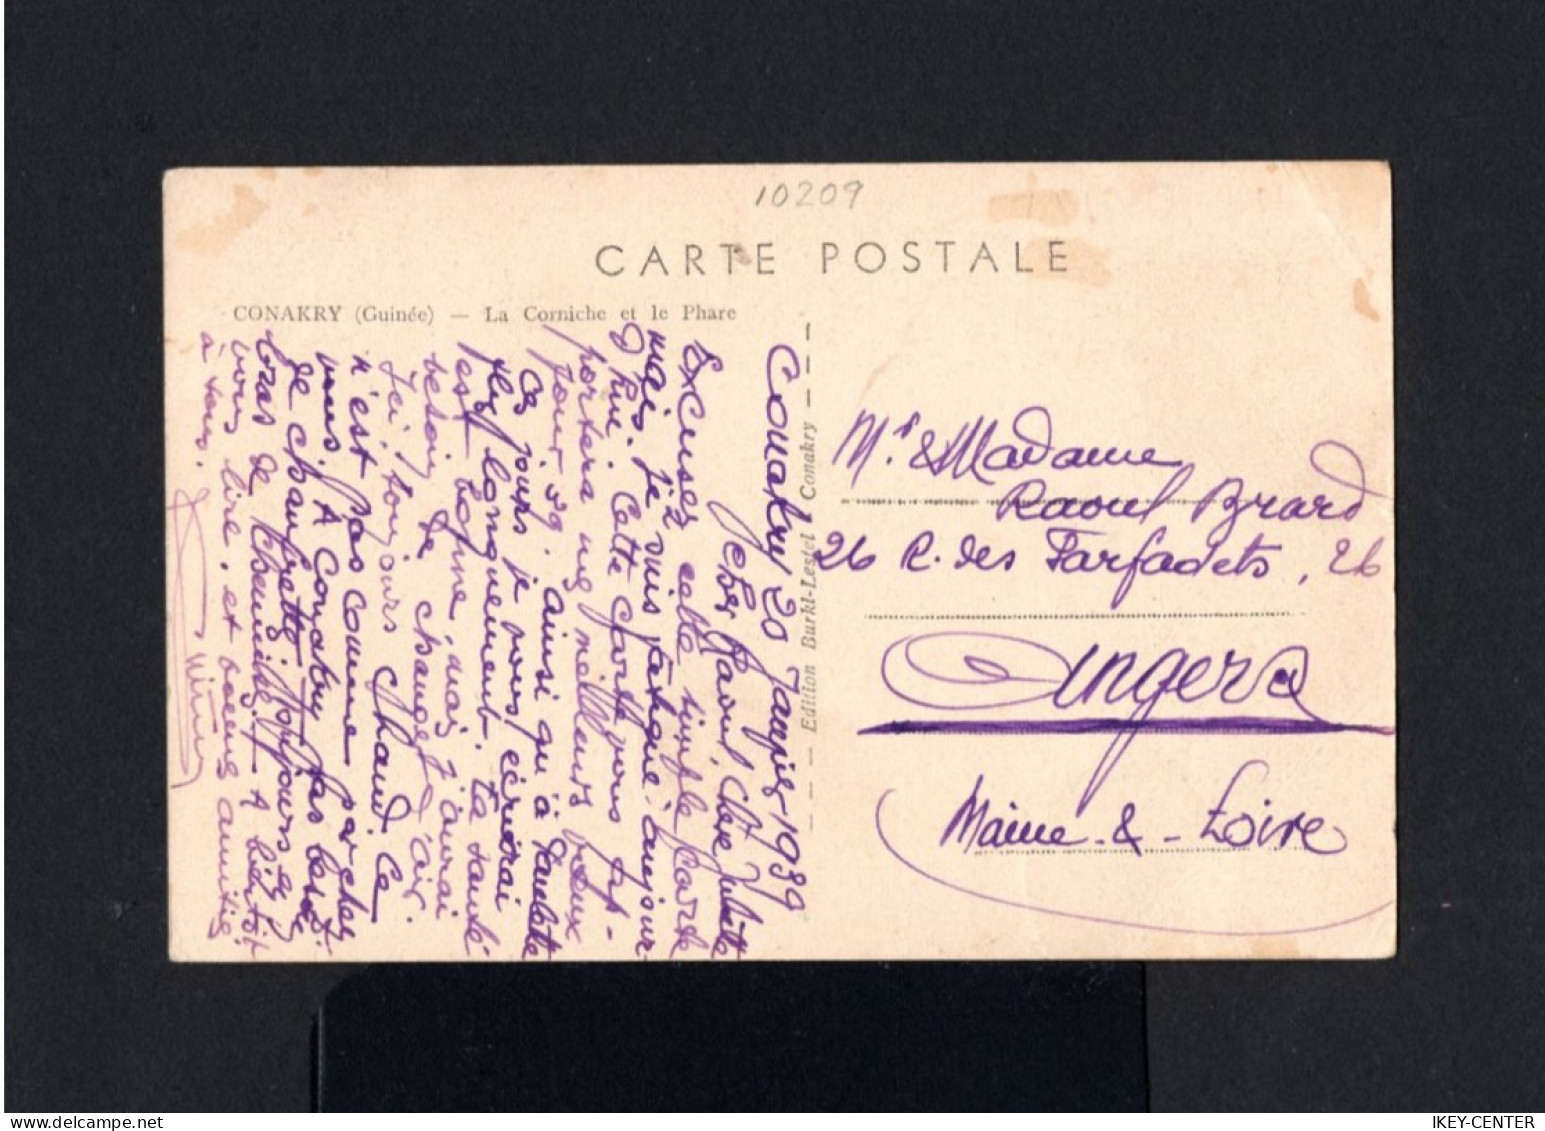 10209
CARTE POSTALE
CONAKRY (Guinée) — La Corniche et le Phare
Conakry 20 Janvier 1939
Cher Raoul, Chère Juliette
Excusez cette simple carte
mais je suis fatigué aujour
d'hui. Cette carte vous ap-
portera mes meilleurs vœux
pour 39. Ainsi qu'à Paulette
Ces jours je vous écrirai
plus longuement. Ta santé
est bonne, mais j'aurai
besoin de changer d'air.
J'ai toujours chaud. Ce
n'est pas comme par chez
vous. A Conakry pas besoin
de chaufrette toujours en
bras de chemise. A bientôt
vous lire, et bonne amitié
à tous.
Edition Burki-Lestel Conakry
Mr & Madame
Raoul Brard
26 R. des Farfadets, 26
Angers
Maine-&-Loire
IKEY-CENTER
delcampe.net